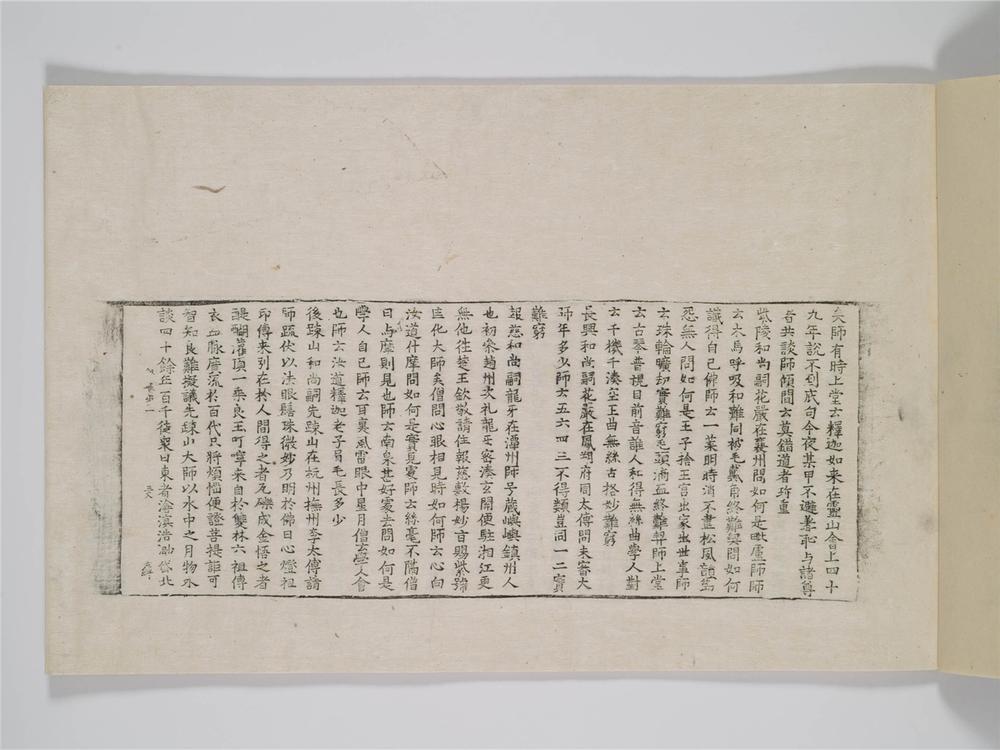 矣師有時上堂云釋迦如来在靈山會上四十
九年說不到底句今夜某甲不避羞耻与諸尊
者共談師傾間云莫錯道者珎重
紫陵和尚嗣花嚴在襄州問如何是毗盧師師
云木馬呼吸和難同被毛戴角終難契問如何
識得自己佛師云一葉明時消不盡松風韻
㤪無人問如何是王子捨王宮出家出世事師
云珠輪曠劫實難窮毛頭滴血終難契師上堂
云古琴普視目前音誰人和得無絲曲學人對
云千機千湊空王曲無絲古格妙難窮
長興和尚嗣花嚴在鳳翔府同太傅問未審大
師年多少師云五六四三不得類豈同一二實
難窮
報慈和尚嗣龍牙在潭州師号藏嶼嶼鎮州人
也初參趙州次礼龍牙密湊玄開便駐湘江更
無他往楚王欽敬請住報慈敷楊妙音賜紫號
匡化大師矣僧問心眼相見時如何師云心向
汝道什摩問如何是實見處師云絲毫不隔僧
曰与摩則見也師云南泉甚好處去問如何是
學人自己師云耳裏風雷眼中星月僧云學人會
也師云汝道釋迦老子眉毛長多少
後踈山和尚嗣先踈山在杭州撫州李太傅請
師䟽伏以法眼髻珠微妙乃明於佛日心燈祖
印傳来列在於人間得之者瓦礫成金悟之者
醍醐灌頂一乘良玉叮嚀来自於雙林六祖傳
衣血脉流於百代只將煩惱便證菩提誰可
智知良難擬議先踈山大師以水中之月物外
談四十餘年百千徒衆日東者滄溟浩渺際北